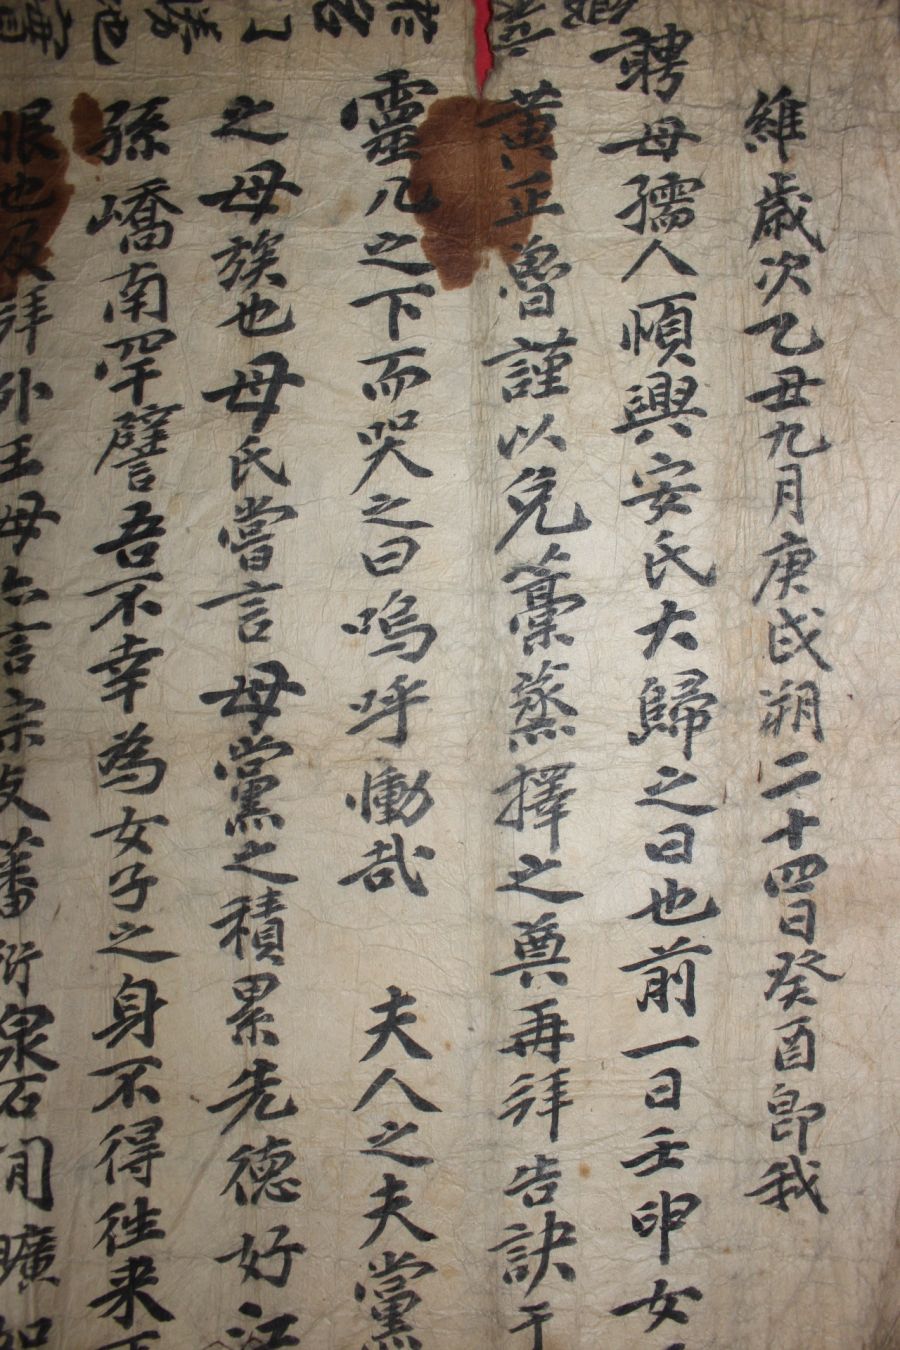 維歲次乙丑九月庚戌朔二十四日癸酉即我
聘母孺人順興安氏大歸之日也前一日壬申女
黃正魯謹以兔藁蒸擇之奠再拜告訣于
靈几之下而哭之曰嗚呼慟哉 夫人之夫黨
之母族也母氏嘗言母黨之積累先德好江
孫嶠南罕譬吾不幸為女子之身不得往来
眼也及拜外王母亦言宗支蕃衍泉石間曠如